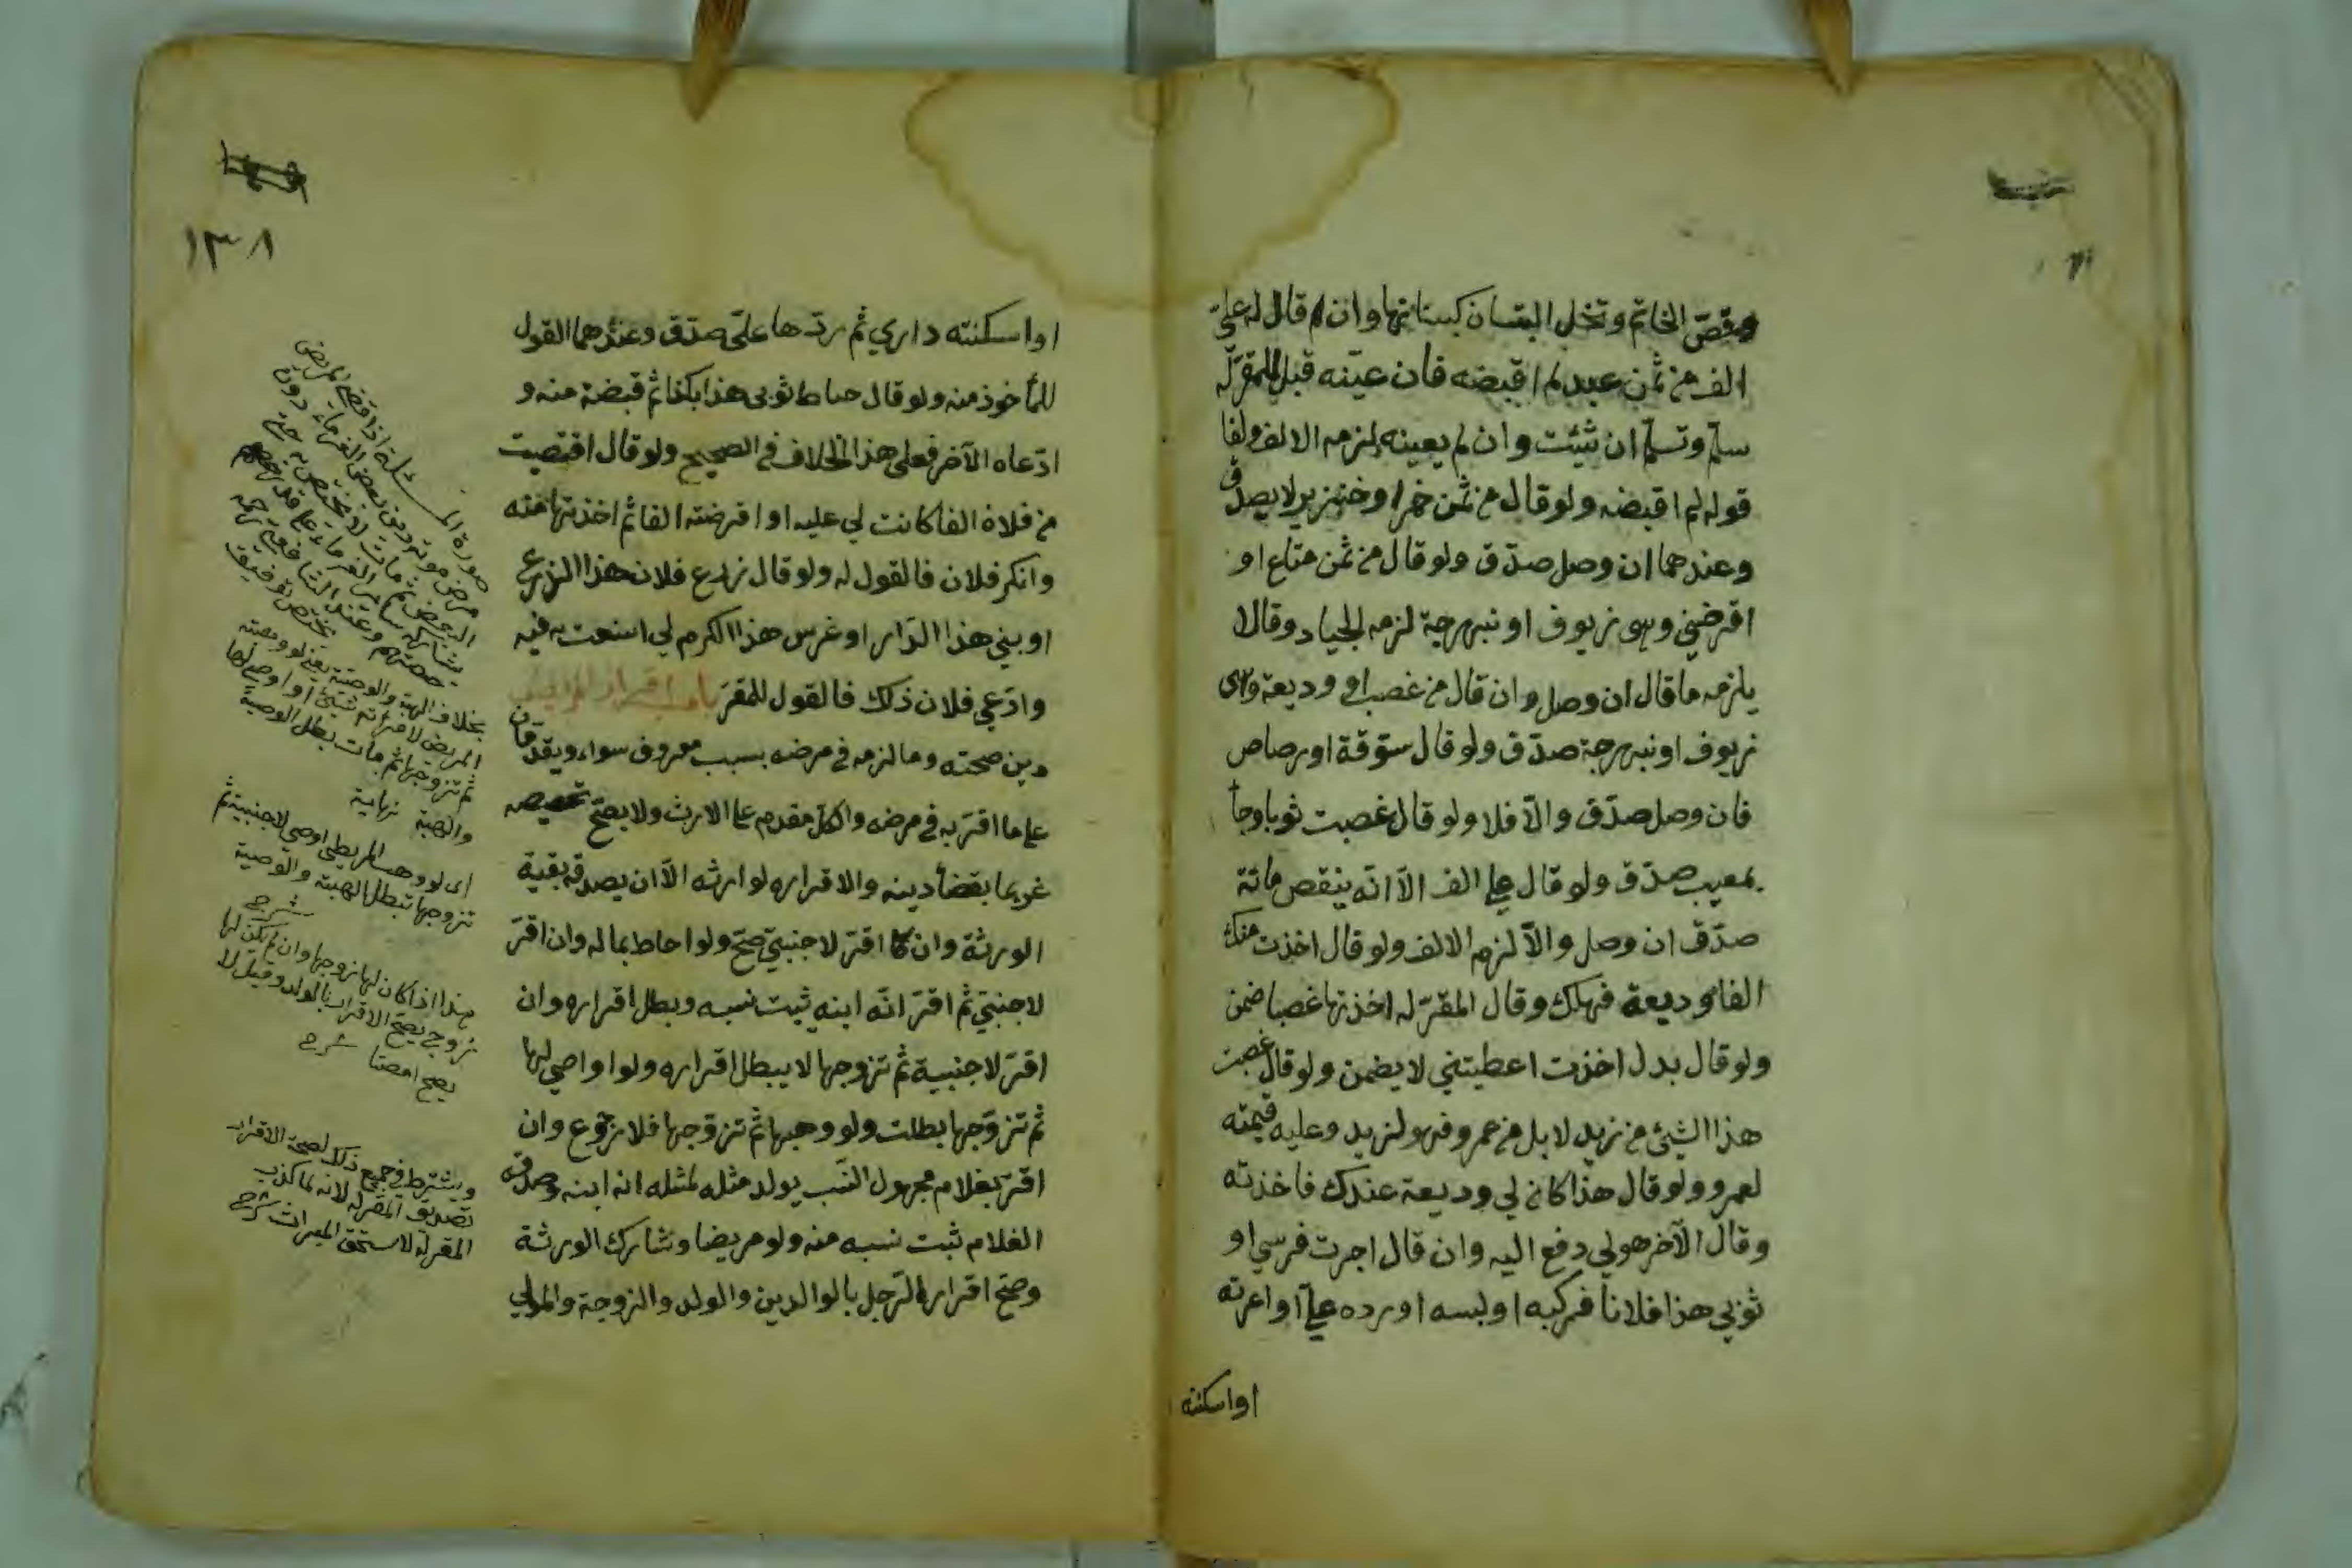 وفصّ الخاتم ونخل البستان كبنائها وان قال له عليّ
الف من ثمن عبد لم اقبضه فان عينه قبل للمقرّ له
سلّم وتسلّم ان شئت وان لم يعينه لزمه الالف ولغا
قوله لم اقبضه ولو قال من ثمن خمر او خنزير لا يصدق
وعندهما ان وصل صدّق ولو قال من ثمن متاع او
اقرضني وهى زيوف او نبهرجة لزمه الجياد وقالا
يلزمه ما قال ان وصل وان قال من غصب او وديعة وهى
زيوف او نبهرجة صدّق ولو قال ستوقة او رصاص
فان وصل صدّق والّا فلا ولو قال غصبت ثوبا وجأ
بمعيب صدّق ولو قال على الف الّا انّه ينقص مائة
صدّق ان وصل والّا لزم الالف ولو قال اخذت منك
الفا وديعة فهلك وقال المقرّ له اخذتها غصبا ضمن
ولو قال بدل اخذت اعطيتني لا يضمن ولو قال غصبت
هذا الشئ من زيد لا بل من عمرو فهو لزيد وعليه قيمته
لعمرو ولو قال هذا كان لي وديعة عندك فاخذته
وقال الآخر هو لي دفع اليه وان قال اجرت فرسي او
ثوبي هذا فلانا فركبه او لبسه او رده عليّ او اعرته
او اسكنته
١٣٨
او اسكنته داري ثم ردّها عليّ صدّق وعندهما القول
للمأخوذ منه ولو قال خاط ثوبى هذا بكذا ثم قبضة منه و
ادّعاه الآخر فعلى هذا الخلاف في الصحيح ولو قال اقتضيت
من فلان الفا كانت لي عليه او اقرضته الفا ثم اخذتها منه
وانكر فلان فالقول له ولو قال زرع فلان هذا الزرع
او بني هذا الدّار او غرس هذا الكرم لي استعنت به فيه
وادّعي فلان ذلك فالقول للمقرّ باب اقرار المريض
دين صحته وما لزمه في مرضه بسبب معروف سواء ويقدمان
على ما اقرّ به في مرضه والكل مقدم على الارث ولا يصحّ تخصيصه
غريما بقضأ دينه ولا اقراره لوارثه الّا ان يصدقه بقية
الورثة وان اقرّ لاجنبيّ صحّ ولو احاط بماله وان اقرّ
لاجنبيّ ثم اقرّ انّه ابنه ثبت نسبه وبطل اقراره وان
اقرّ لاجنبية ثم تزوجها لا يبطل اقراره ولو اوصي لها
ثم تزوّجها بطلت ولو وهبها ثم تزوّجها فلا رجوع وان
اقرّ بغلام مجهول النسب يولد مثله لمثله انه ابنه وصدقه
الغلام ثبت نسبه منه ولو مريضا وشارك الورثة
وصحّ اقرار الرّجل بالوالدين والولد والزوجة والمولي
صورة المسئلة اذا قضى المريض
مرض موته دين بعض الغرماء دون
البعض ثم مات لا يختص به حتى
يشاركه سائر الغرماء على قدر
حصتهم وعند الشافعي رحمه
يختص توفيق
بخلاف الهبة والوصية يعني لو وهبته
المريض لامرأته شيئ او اوصي لها
ثم تزوجها ثم مات بطل الوصية
والهبة نهاية
اى لو وهب المريض او اوصي لاجنبية ثم
تزوجها تبطل الهبة والوصية
شرح
هذا اذا كان لها زوجها وان لم يكن لها
زوج يصحّ الاقرار بالولد وقيل لا
يصح شرح
ويشترط في جميع ذلك لصحة الاقرار
تصديق المقر له لانه لما كذب
المقر له لا يستحق الميراث شرح